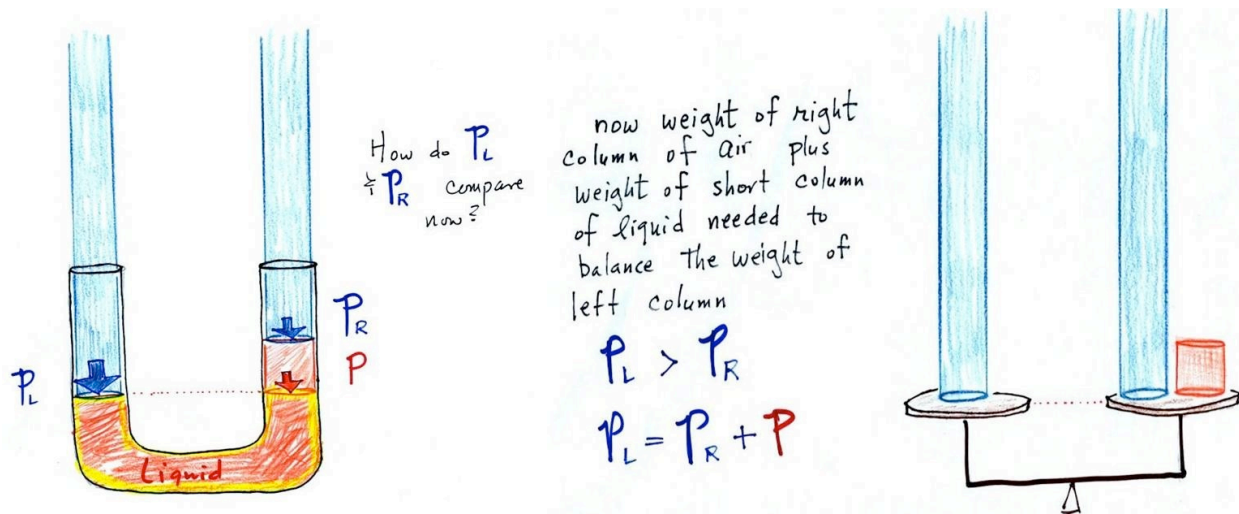 How do PL
& PR compare
now?
now weight of right
column of air plus
weight of short column
of liquid needed to
balance the weight of
left column
PL > PR
PL = PR + P
PR
P
PL
Liquid